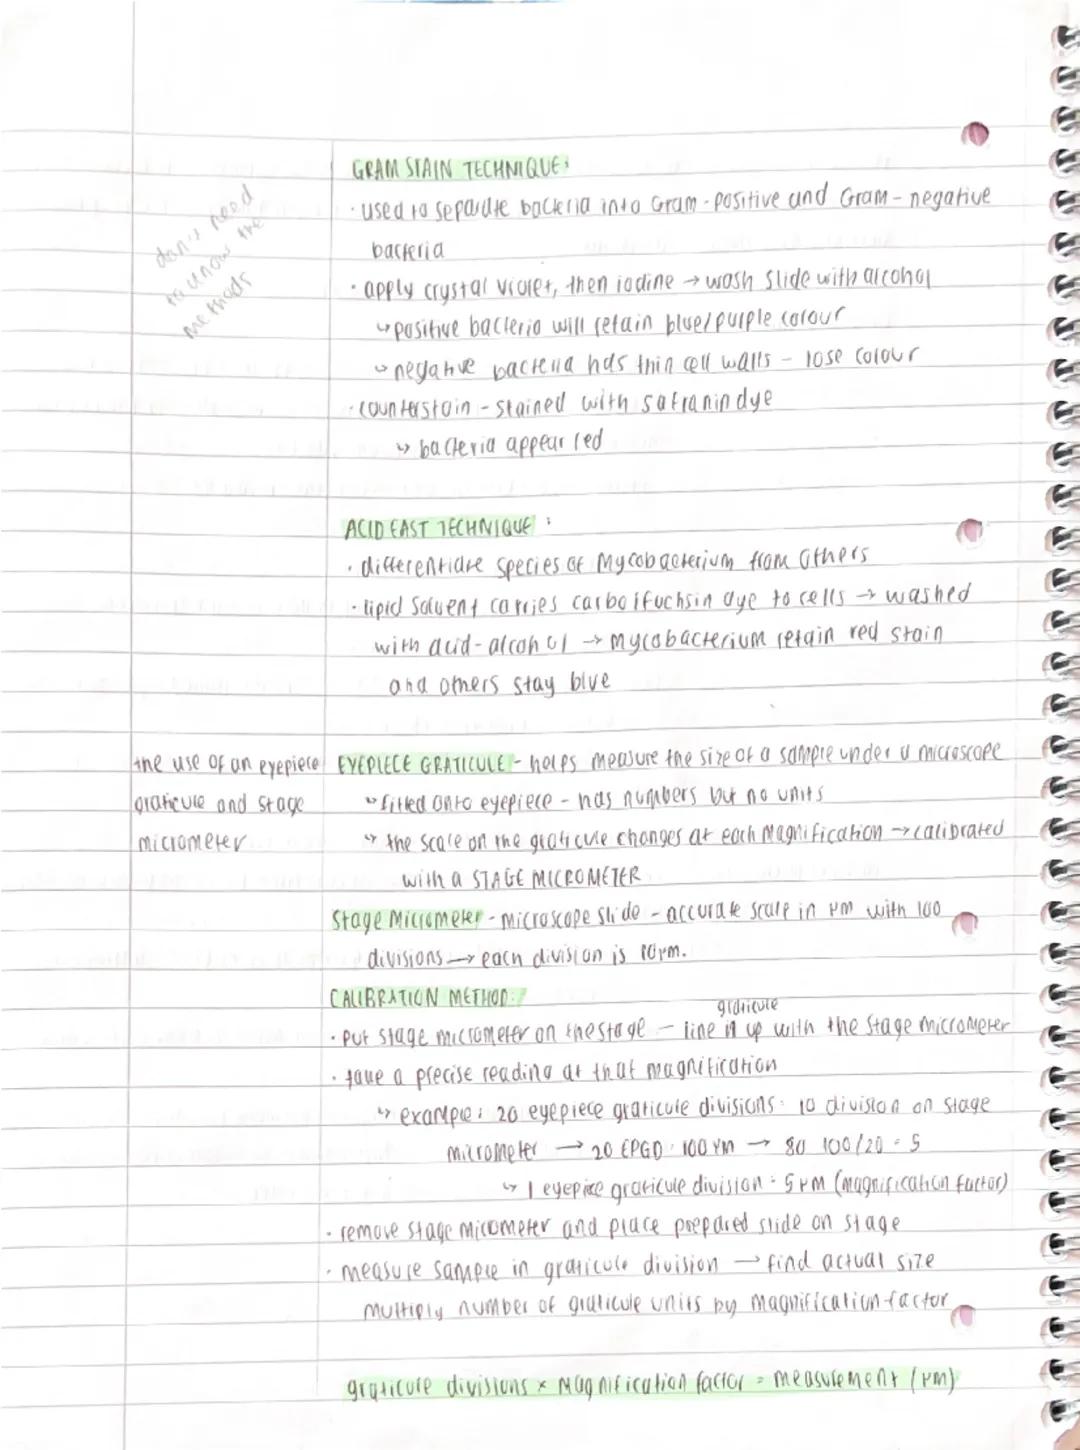 GRAM STAIN TECHNIQUE:
don't need
to know the
methods
· used to separate bacteria into Gram-positive and Gram-negative
bacteria
· apply crystal violet, then iodine → wash slide with alcohol
↳ positive bacteria will retain blue/purple colour
↳ negative bacteria has thin cell walls - lose colour
· counterstain - stained with safranin dye
↳ bacteria appear red
ACID FAST TECHNIQUE:
· differentiate species of Mycobacterium from others
· lipid solvent carries carbolfuchsin dye to cells → washed
with acid-alcohol → mycobacterium retain red stain
and others stay blue
the use of an eyepiece
graticule and stage
micrometer
EYEPIECE GRATICULE - helps measure the size of a sample under a microscope
↳ fitted onto eyepiece - has numbers but no units
↳ the scale on the graticule changes at each magnification → calibrated
with a STAGE MICROMETER
Stage Micrometer - microscope slide - accurate scale in µm with 100
divisions → each division is 10µm.
CALIBRATION METHOD:
graticule
· put stage micrometer on the stage - line it up with the stage micrometer
· take a precise reading at that magnification
↳ example: 20 eyepiece graticule divisions = 10 division on stage
micrometer → 20 EPGD = 100µm → 80 100/20 = 5
↳ 1 eyepiece graticule division = 5µm (magnification factor)
· remove stage micometer and place prepared slide on stage
· measure sample in graticule division → find actual size
multiply number of graticule units by magnification factor
graticule divisions × Magnification factor = measurement (µm)